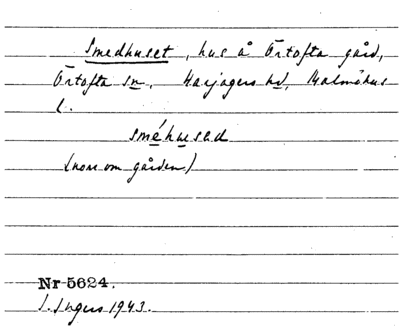 Smedhuset, hus å Örtofta gård,
Örtofta sn, Harjagers hd, Malmöhus
l.
sméhused
(norr om gården)
Nr 5624.
1943.